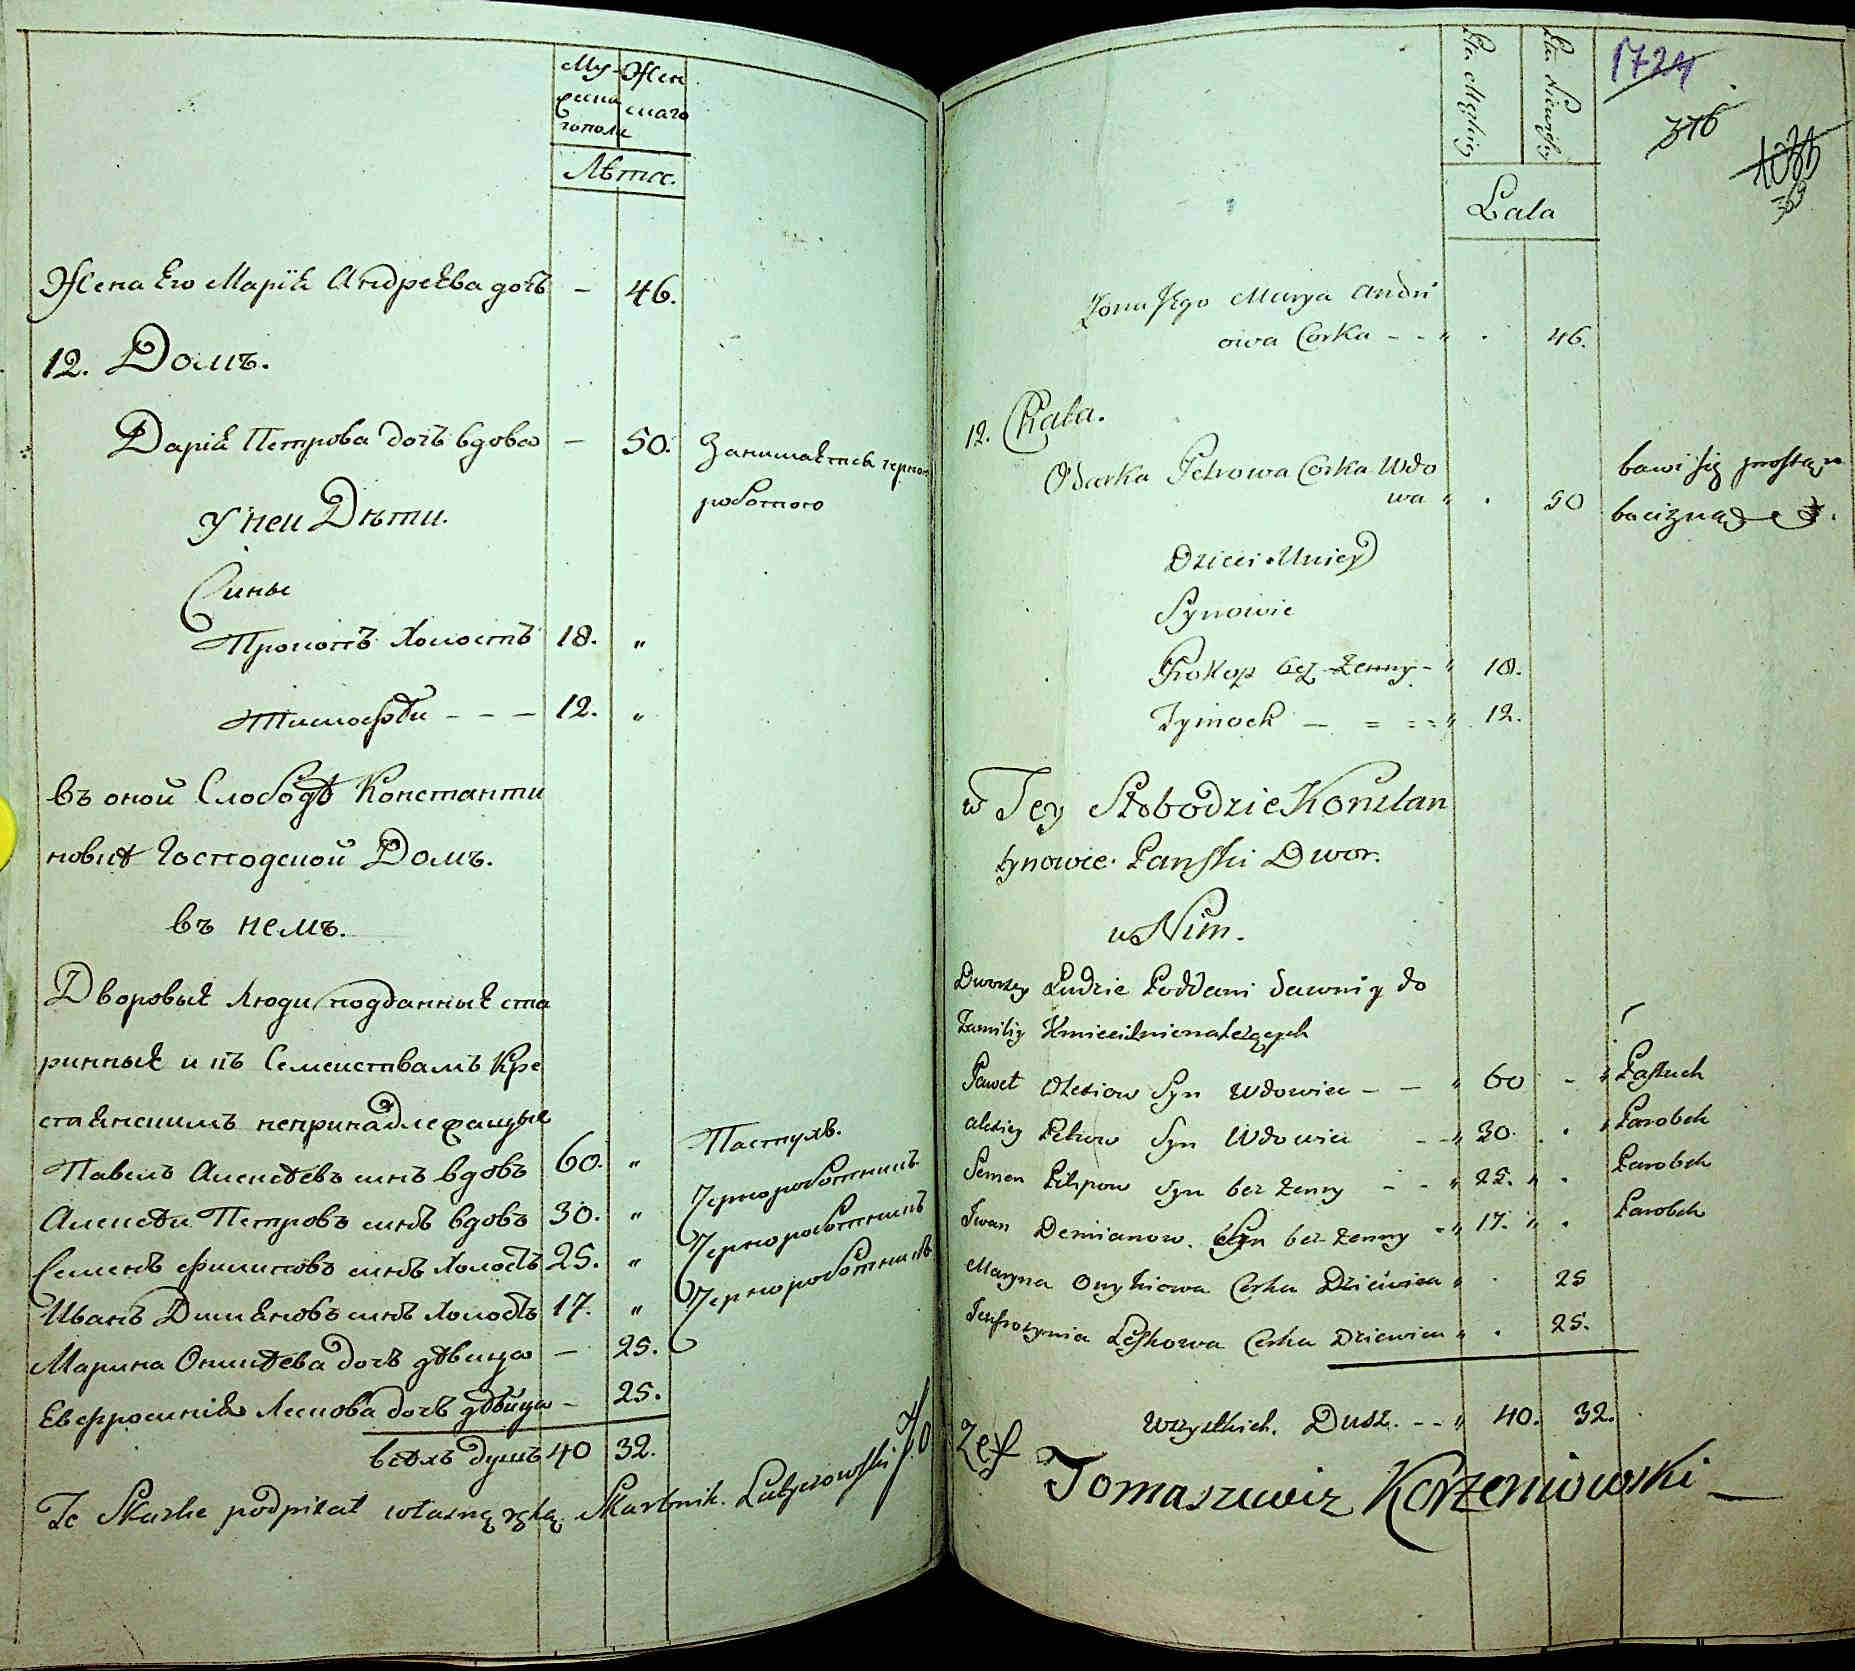 Му-
Жен
жеска
скаго
гополу
Лѣта.
Жена Его Марія Андреева дочь – 46.
12. Домъ.
Дарія Петрова дочь вдова – 50. Занимается черною
работою
У неи Дѣти.
Сины
Прокопъ холостъ 18. „
Тимофѣй – – – 12. „
въ оной Слободѣ Константи
новкѣ Господской Домъ.
въ немъ.
Дворовые люди подданные ста
ринные и къ Семействамъ Кре
стьянскимъ непринадлежащые
Павелъ Алексѣевъ синъ вдовъ 60. „ Пастухъ.
Алексѣй Петровъ синъ вдовъ 30. „ Чернороботникъ
Семенъ Филиповъ синъ холостъ 25. „ Чернороботникъ
Иванъ Димяновъ синъ холостъ 17. „ Чернороботникъ
Марина Оникѣева дочь дѣвица – 25.
Евфросинія Леснова дочь дѣвица – 25.
всѣхъ душъ 40 32.
Te Skaske podpisał własną ręką Skarbnik
1724
376
Płci Męskiey
Lata
Żona Jego Marya Andri
owa Corka – – „ . 46.
12. Chata.
Odarka Petrowa Corka Wdo
wa „ . 50
bawi się prostą ro
bocizną
Dzieci u Nieÿ
Synowie
Prokop bez Żenny – „ 18.
Tymoch – = = = „ 12.
w Tey Słobodzie Konstan
tynowie Panski Dwor.
w Nim.
Dworscy Ludzie Poddani dawni y do
Familiy Kmiecich nienależących
Paweł Olexiow Syn Wdowiec – – „ 60 – „ Pastuch
Alexiey Petrow Syn Wdowiec – – „ 30. . . Parobek
Semen Pilipow Syn bez Żenny – – „ 25. „ . Parobek
Iwan Demianow Syn bez Żenny – „ 17. „ . Parobek
Maryna Onykiowa Corka Dziewica „ . 25
Jeufrozynia Leskowa Corka Dziewica „ . 25.
Wszystkich Dusz. – – „ 40. 32.
Józef
Tomaszewicz Korzeniowski –